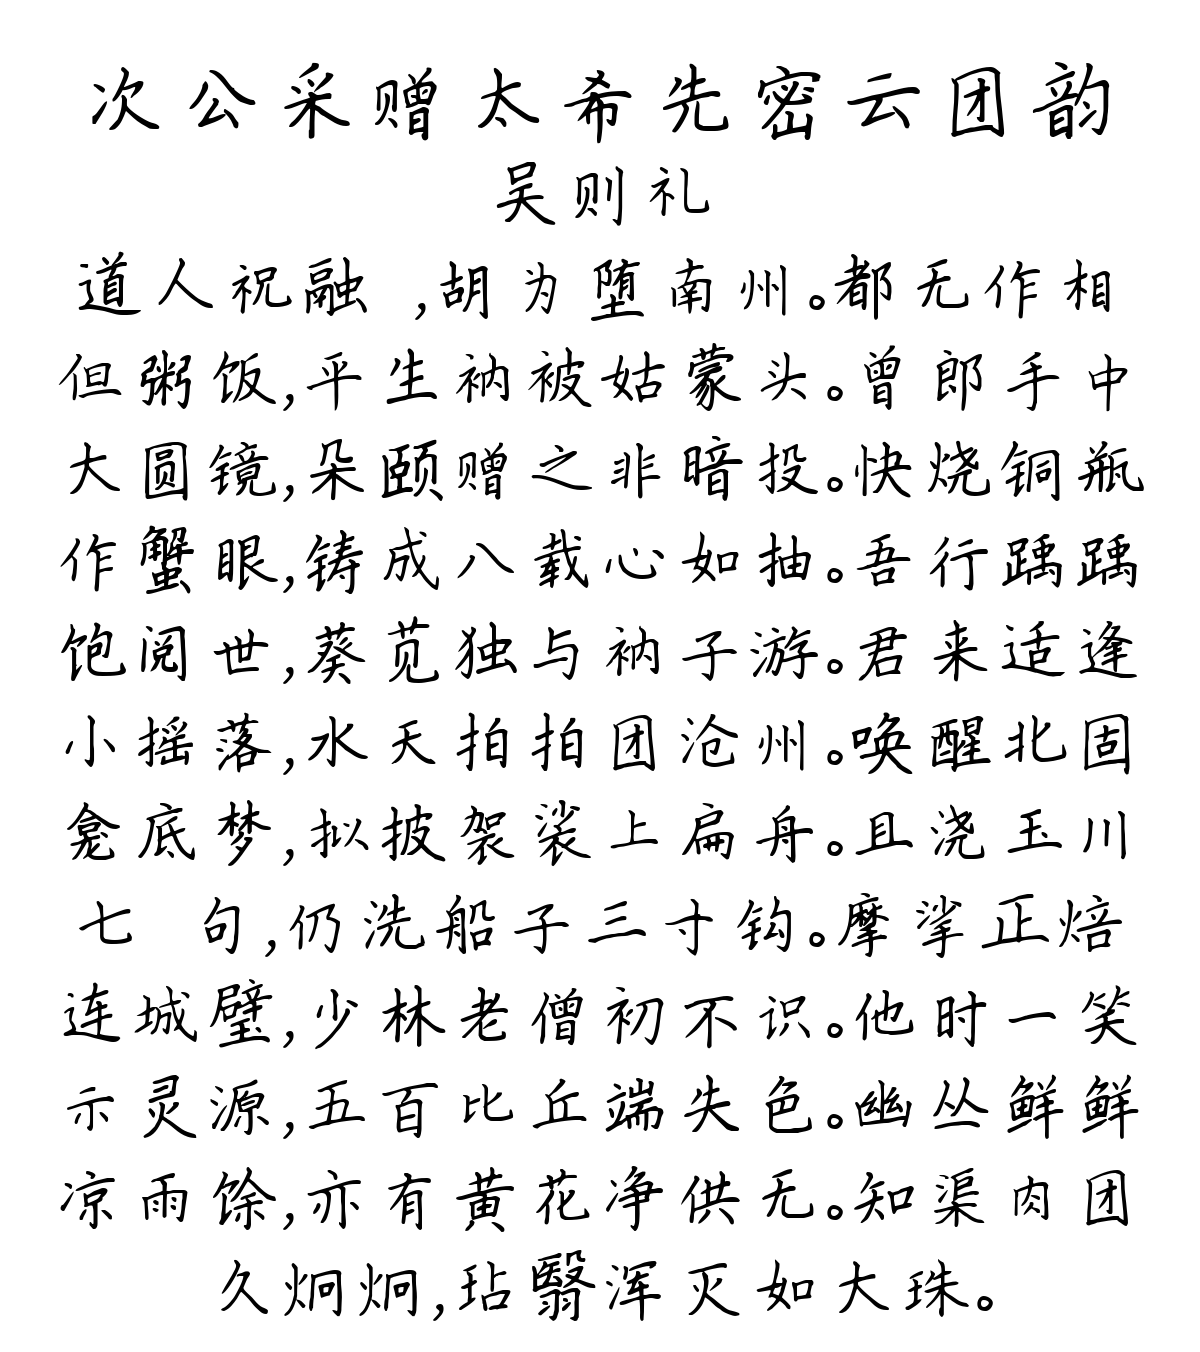 次公采赠太希先密云团韵
吴则礼
道人祝融 ,胡为堕南州。都无作相
但粥饭,平生衲被姑蒙头。曾郎手中
大圆镜,朵颐赠之非暗投。快烧铜瓶
作蟹眼,铸成八载心如抽。吾行踽踽
饱阅世,葵苋独与衲子游。君来适逢
小摇落,水天拍拍团沧州。唤醒北固
龛底梦,拟披袈裟上扁舟。且浇玉川
七 句,仍洗船子三寸钩。摩挲正焙
连城璧,少林老僧初不识。他时一笑
示灵源,五百比丘端失色。幽丛鲜鲜
凉雨馀,亦有黄花净供无。知渠肉团
久炯炯,玷翳浑灭如大珠。